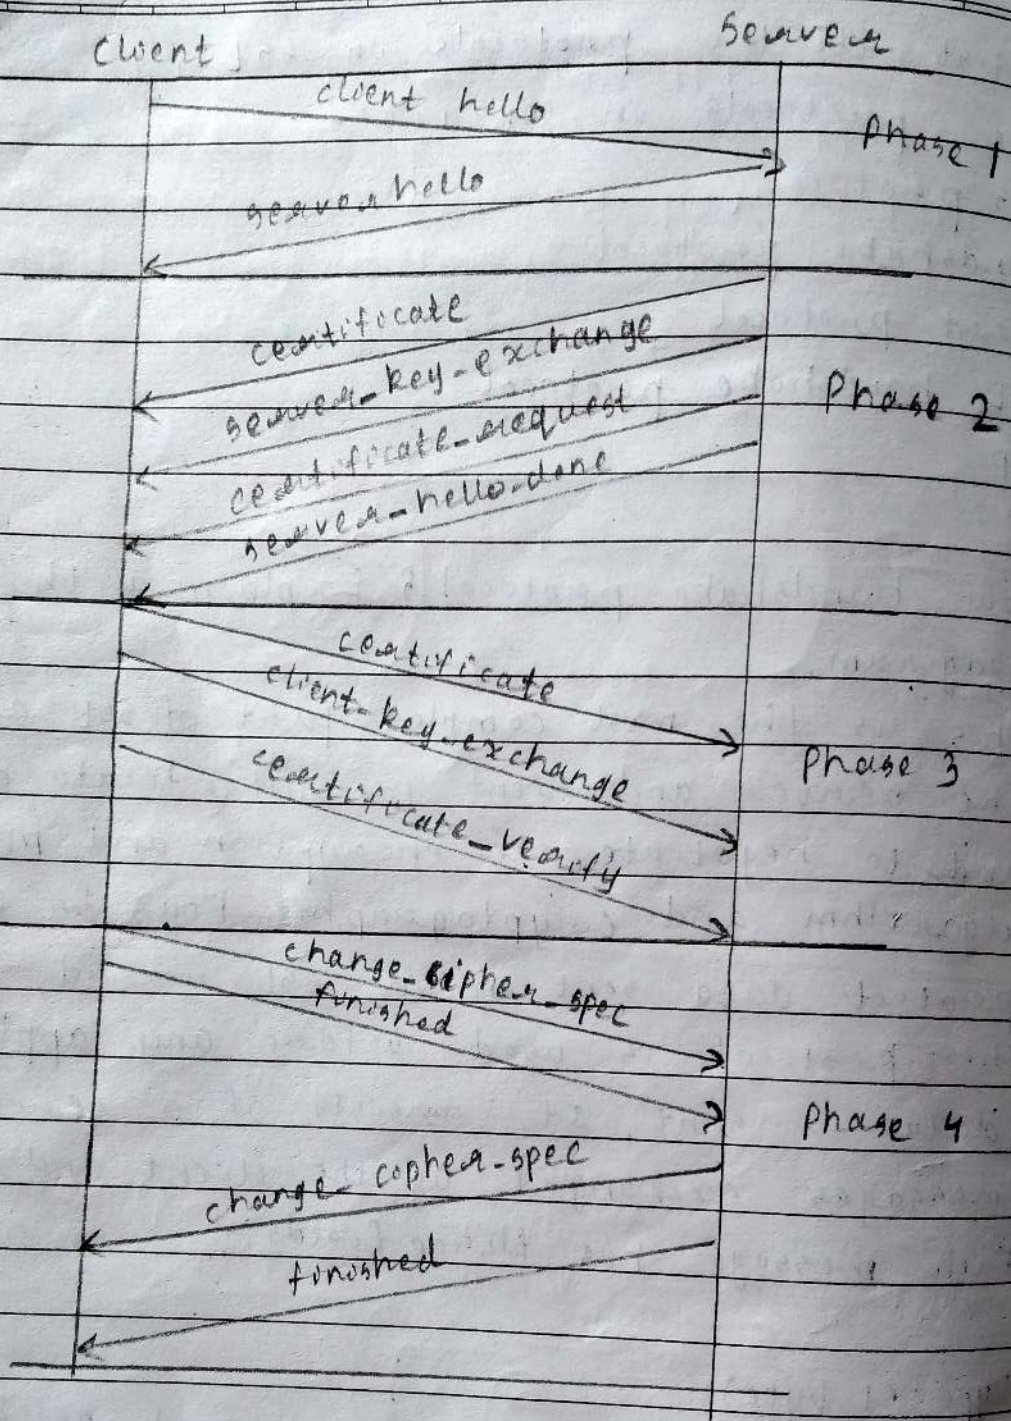 Client Server
client hello
Phase 1
server hello
certificate
server_key_exchange
Phase 2
certificate_request
server_hello_done
certificate
client_key_exchange
Phase 3
certificate_verify
change_cipher_spec
finished
Phase 4
change_cipher_spec
finished